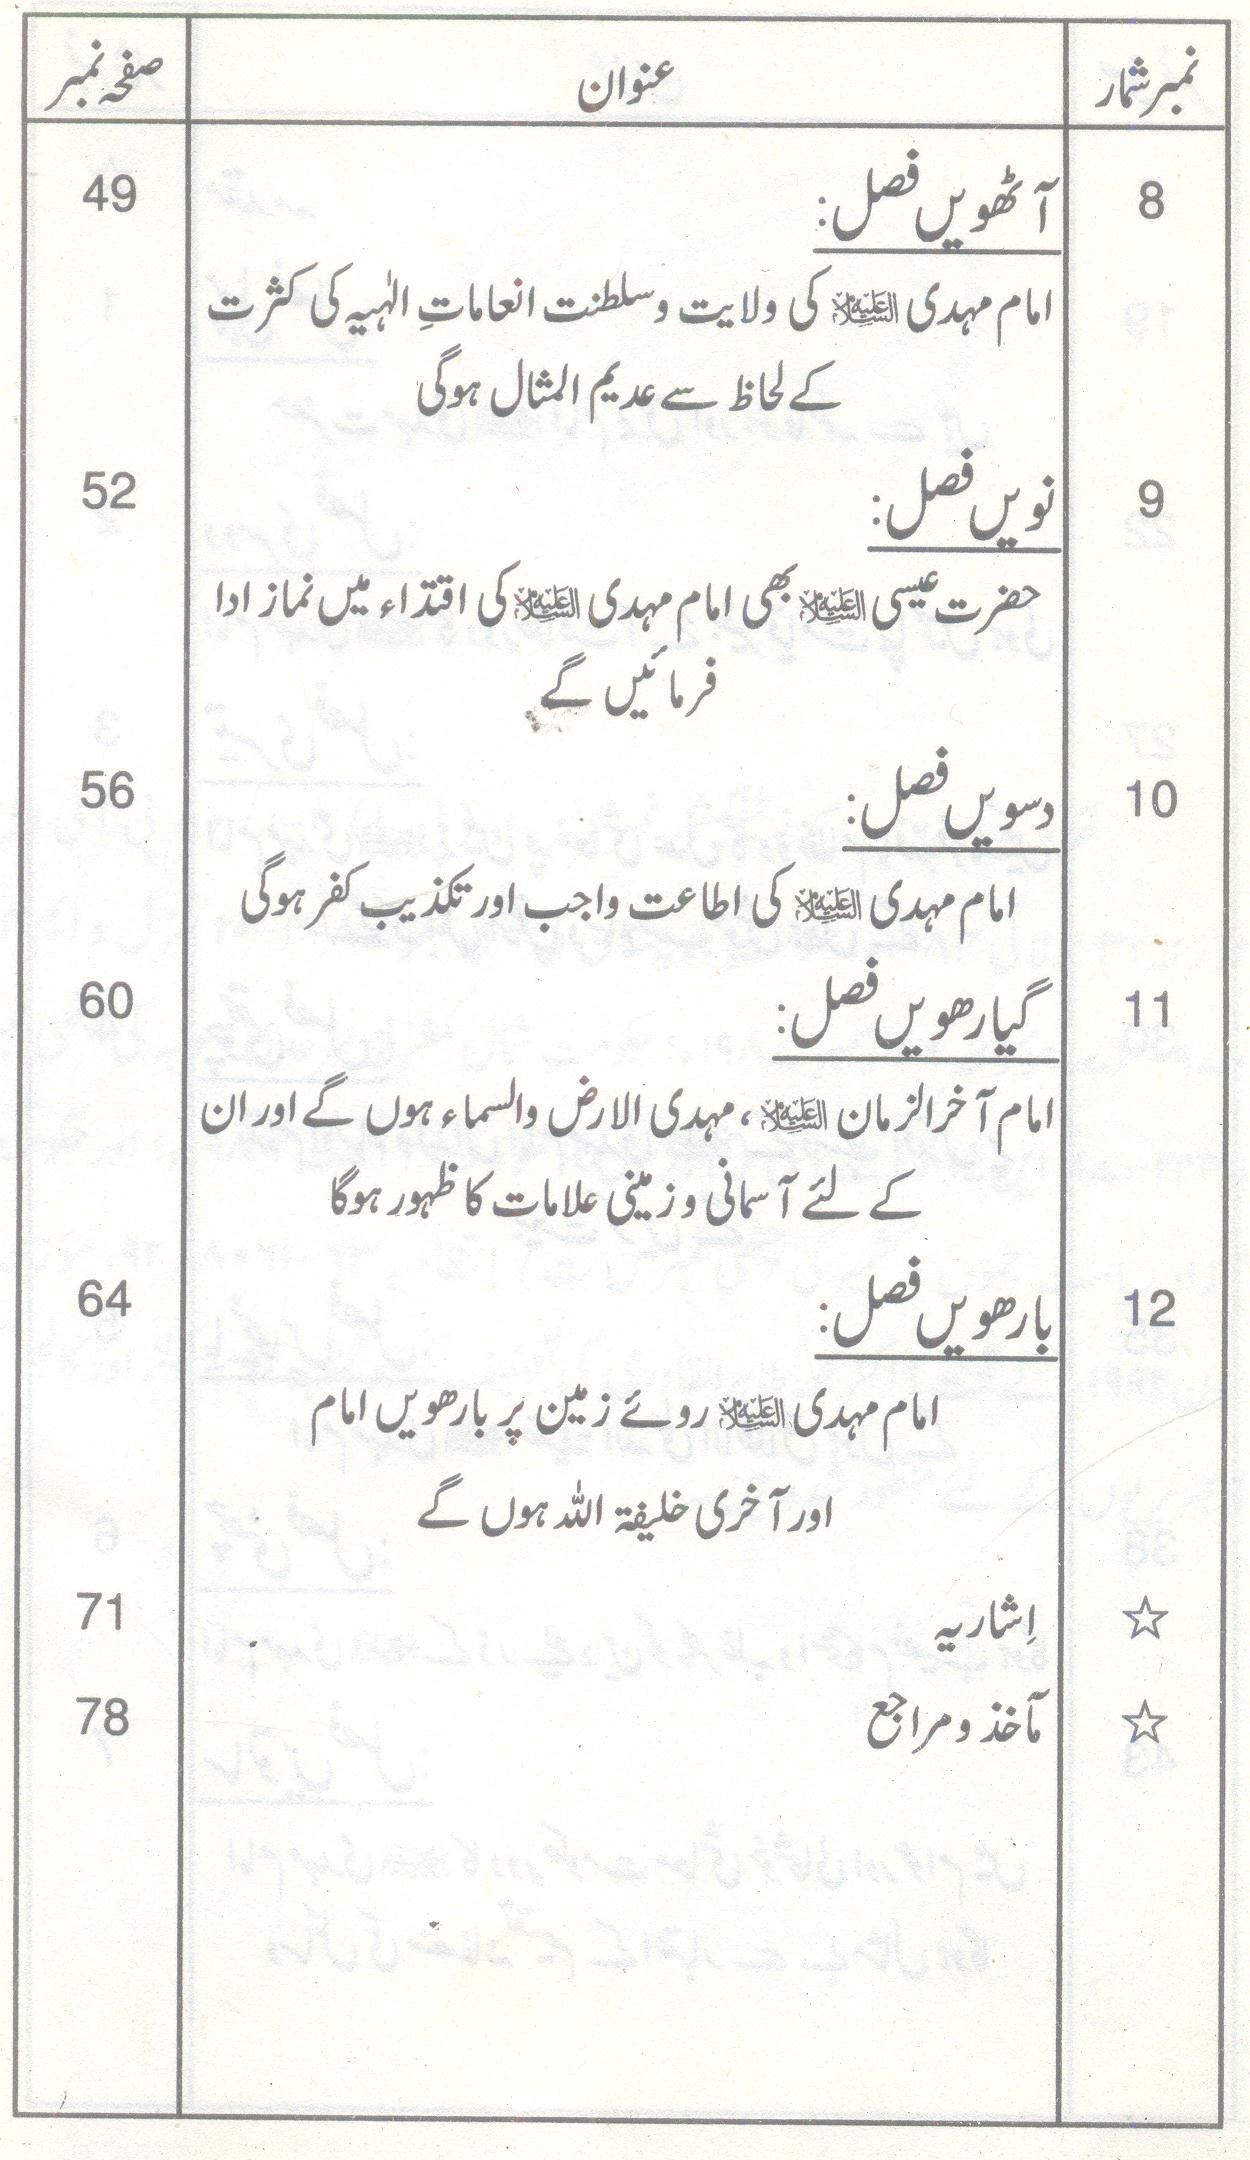 نمبر شمار عنوان صفحہ نمبر
8 آٹھویں فصل: 49
امام مہدی علیہ السلام کی ولایت و سلطنت انعاماتِ الٰہیہ کی کثرت
کے لحاظ سے عدیم المثال ہوگی
9 نویں فصل: 52
حضرت عیسی علیہ السلام بھی امام مہدی علیہ السلام کی اقتداء میں نماز ادا
فرمائیں گے
10 دسویں فصل: 56
امام مہدی علیہ السلام کی اطاعت واجب اور تکذیب کفر ہوگی
11 گیارھویں فصل: 60
امام آخرالزمان علیہ السلام، مہدی الارض والسماء ہوں گے اور ان
کے لئے آسمانی و زمینی علامات کا ظہور ہوگا
12 بارھویں فصل: 64
امام مہدی علیہ السلام روئے زمین پر بارھویں امام
اور آخری خلیفۃ اللہ ہوں گے
☆ اِشاریہ 71
☆ مآخذ و مراجع 78